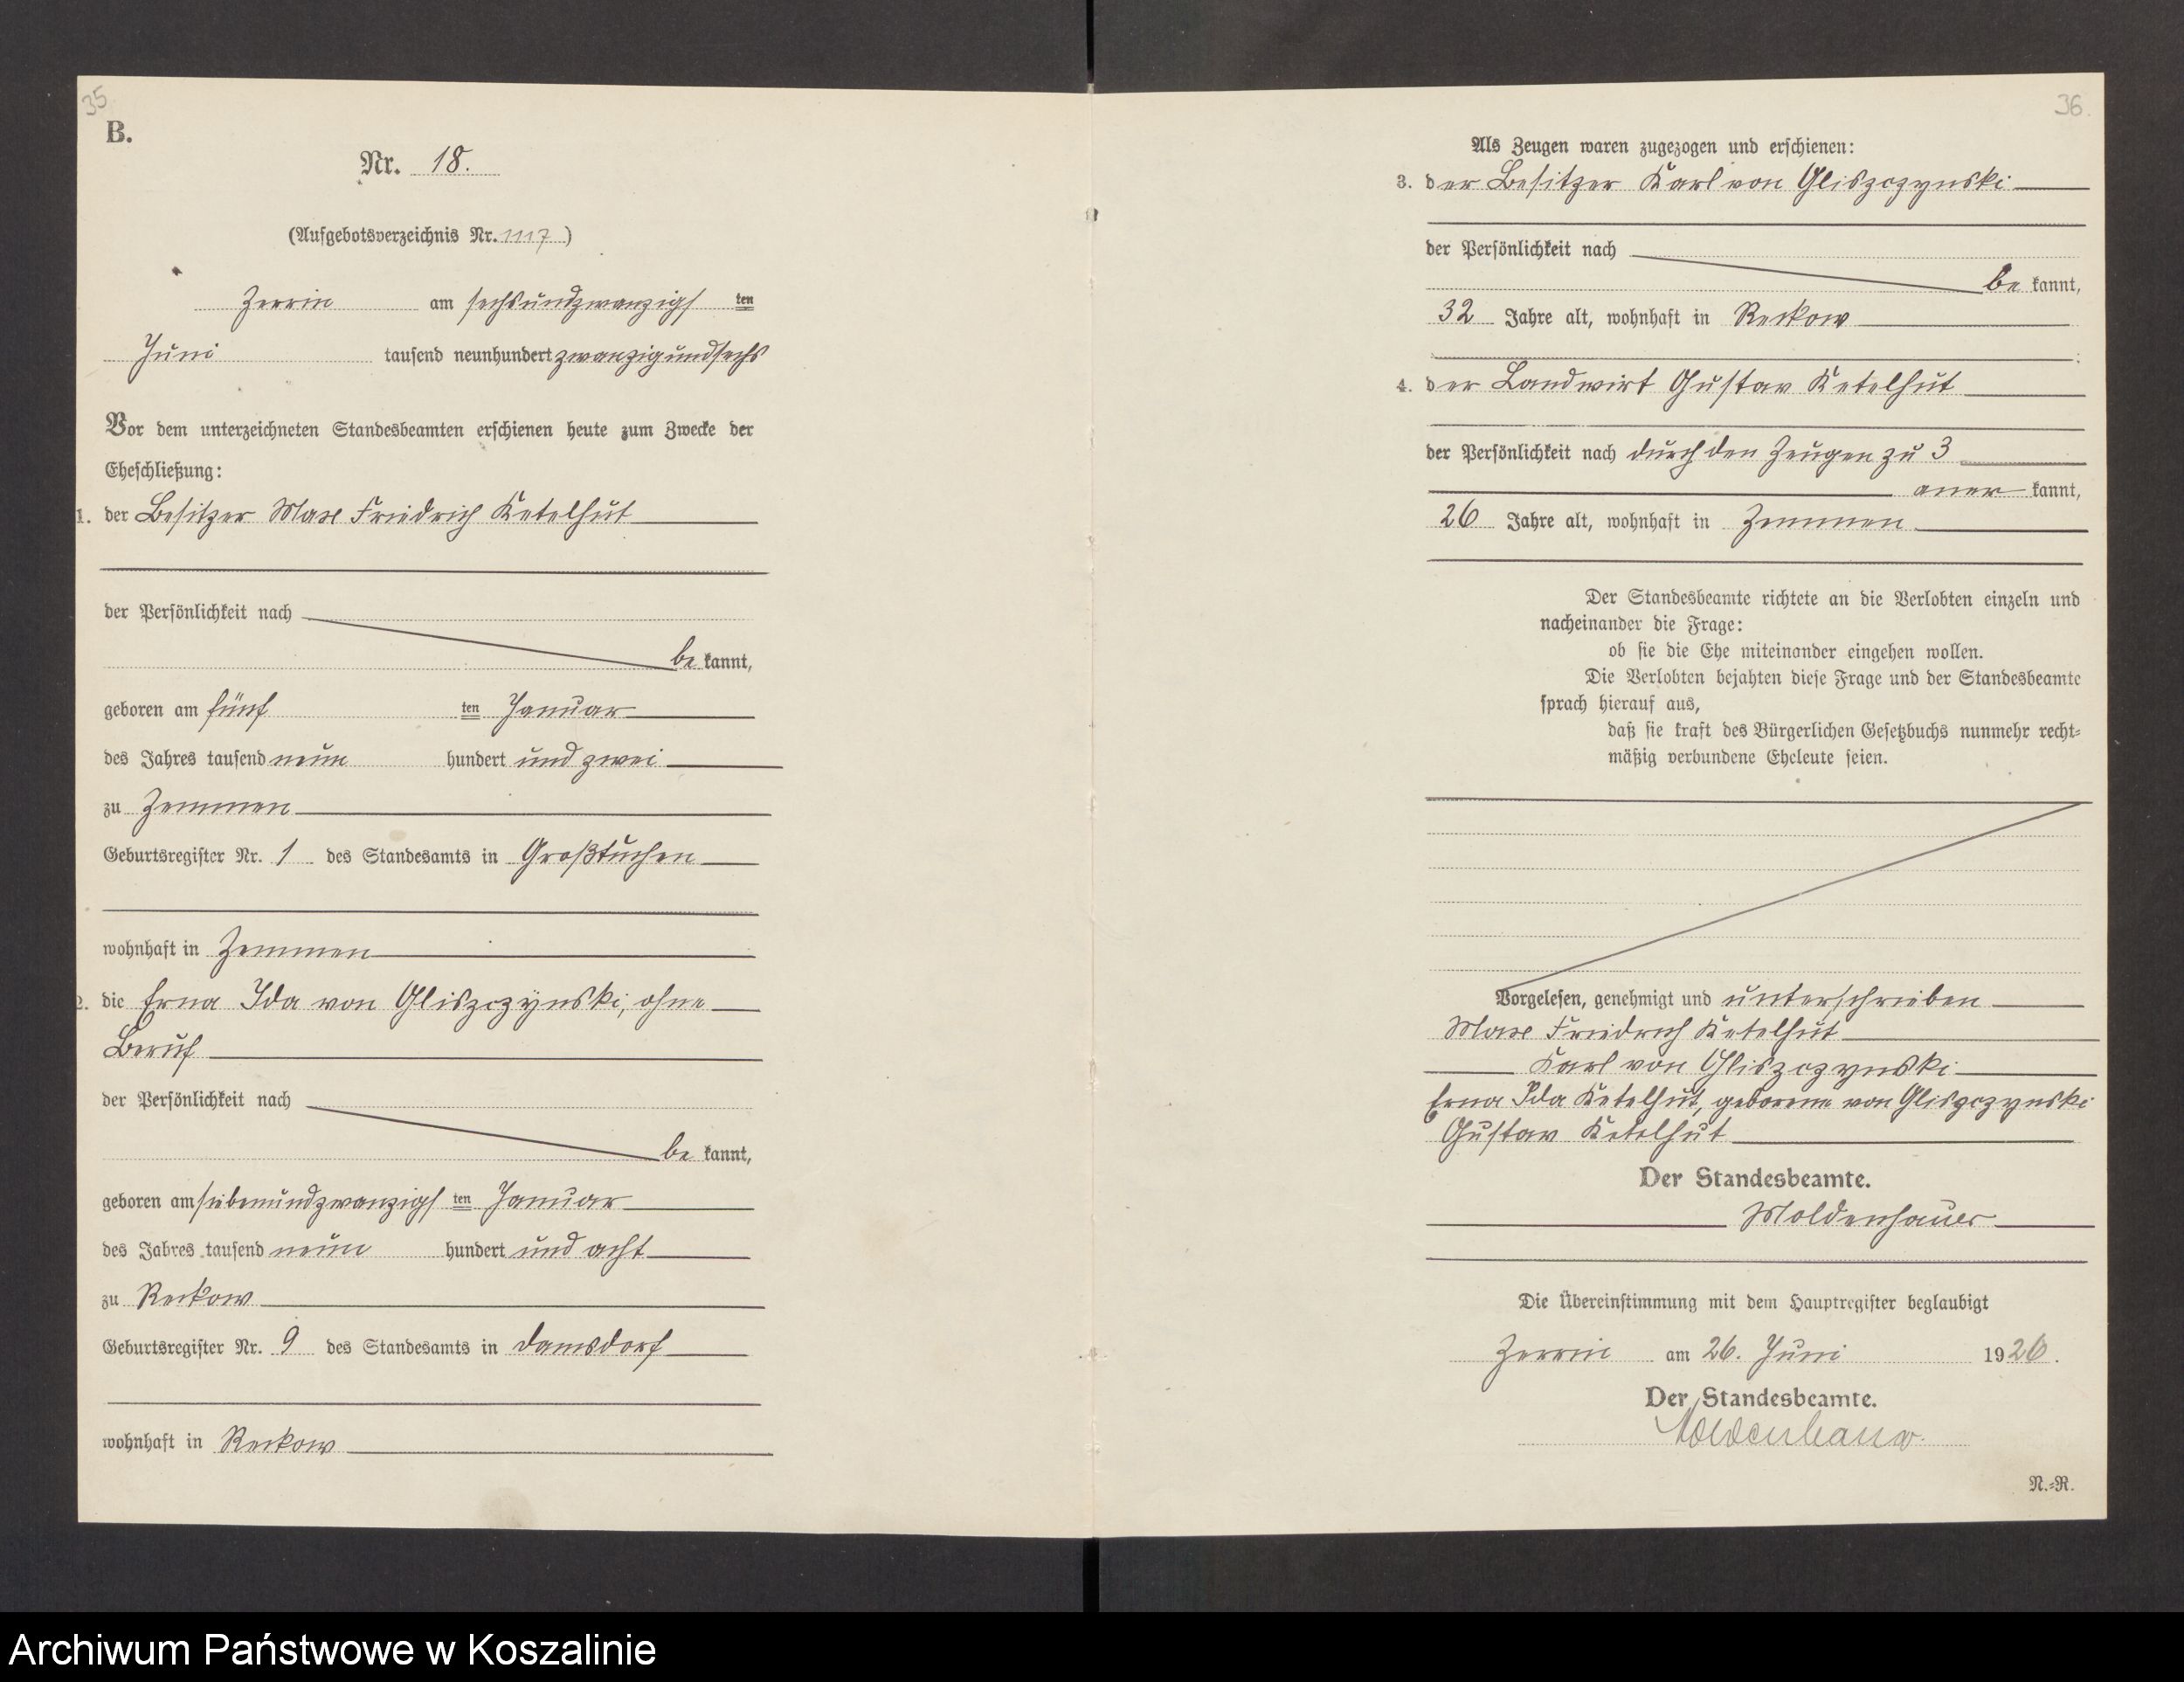 35
B.
Nr. 18.
(Aufgebotsverzeichnis Nr. 1117)
Zerrin am sechsundzwanzigs ten
Juni tausend neunhundert zwanzigundsechs
Vor dem unterzeichneten Standesbeamten erschienen heute zum Zwecke der
Eheschließung:
1. der Besitzer Max Friedrich Ketelhut
der Persönlichkeit nach
be kannt,
geboren am fünf ten Januar
des Jahres tausend neun hundert und zwei
zu Zemmen
Geburtsregister Nr. 1 des Standesamts in Großtuchen
wohnhaft in Zemmen
2. die Erna Ida von Gliszczynski, ohne
Beruf
der Persönlichkeit nach
be kannt,
geboren am siebenundzwanzigs ten Januar
des Jahres tausend neun hundert und acht
zu Reckow
Geburtsregister Nr. 9 des Standesamts in Damsdorf
wohnhaft in Reckow
36.
Als Zeugen waren zugezogen und erschienen:
3. der Besitzer Karl von Gliszczynski
der Persönlichkeit nach
be kannt,
32 Jahre alt, wohnhaft in Reckow
4. der Landwirt Gustav Ketelhut
der Persönlichkeit nach durch den Zeugen zu 3
aner kannt,
26 Jahre alt, wohnhaft in Zemmen
Der Standesbeamte richtete an die Verlobten einzeln und
nacheinander die Frage:
ob sie die Ehe miteinander eingehen wollen.
Die Verlobten bejahten diese Frage und der Standesbeamte
sprach hierauf aus,
daß sie kraft des Bürgerlichen Gesetzbuchs nunmehr recht-
mäßig verbundene Eheleute seien.
Vorgelesen, genehmigt und unterschrieben
Max Friedrich Ketelhut
Karl von Gliszczynski
Erna Ida Ketelhut, geborene von Gliszczynski
Gustav Ketelhut
Der Standesbeamte.
Moldenhauer
Die Übereinstimmung mit dem Hauptregister beglaubigt
Zerrin am 26. Juni 1926.
Der Standesbeamte.
Moldenhauer.
N.-R.
Archiwum Państwowe w Koszalinie